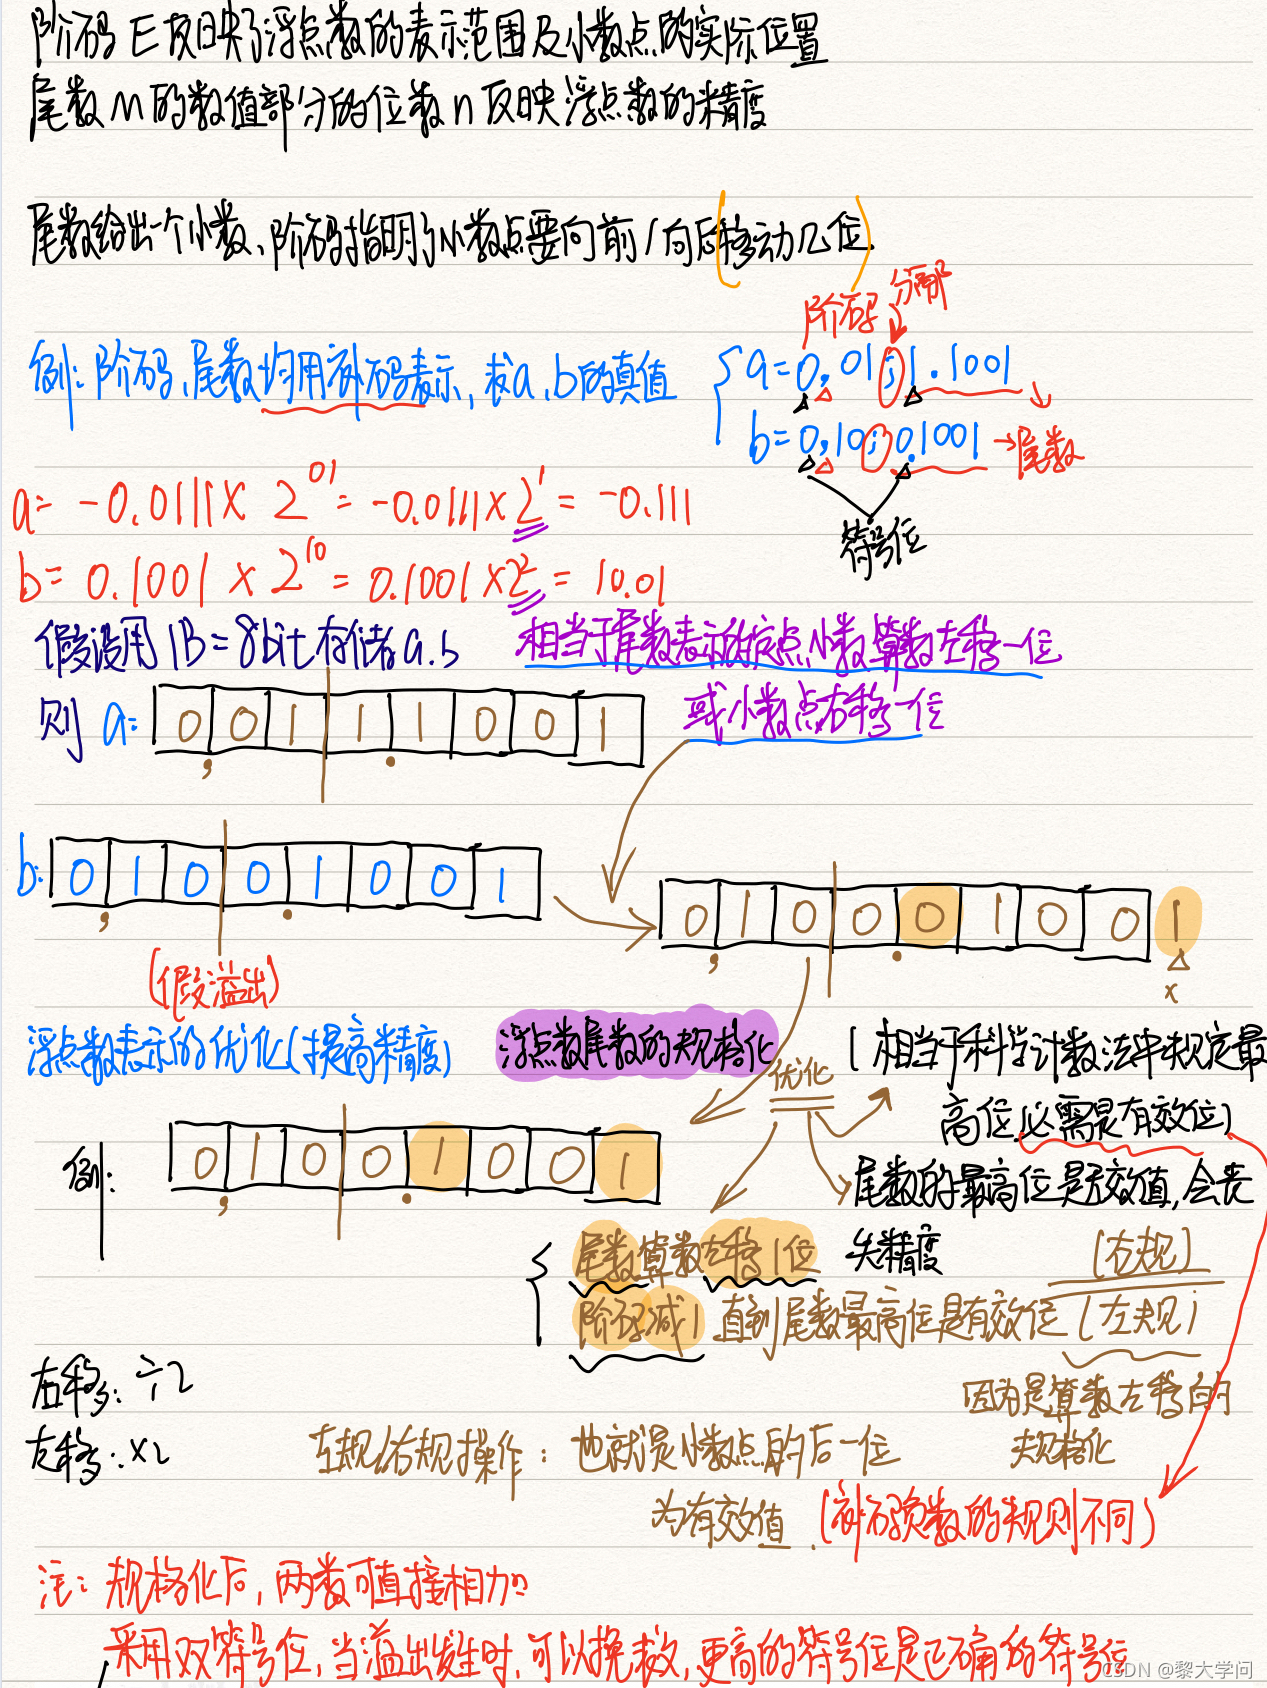 阶码E反映了浮点数的表示范围及小数点的实际位置
尾数M的数值部分的位数n反映浮点数的精度
尾数给出一个小数、阶码指明了小数点要向前/向后移动几位.
阶码 分隔
例:阶码、尾数均用补码表示,求a、b的真值
a=0,01;1.1001
b=0,10;0.1001 →尾数
符号位
a=-0.0111×2^01=-0.0111×2^1=-0.111
b=0.1001×2^10=0.1001×2^2=10.01
假设用1B=8bit存储a.b
相当于尾数表示的定点小数算数左移一位
或小数点右移一位
则 a: 0 0 1 1 1 0 0 1
, .
b: 0 1 0 0 1 0 0 1
, .
0 1 0 0 0 1 0 0 1
, . x
(假溢出)
浮点数表示的优化(提高精度)
浮点数尾数的规格化
优化
(相当于科学计数法中规定最
高位必需是有效位)
例: 0 1 0 0 1 0 0 1
, .
尾数的最高位是无效值,会丧
失精度
尾数算数左移1位
(右规)
阶码减1 直到尾数最高位是有效位(左规)
因为是算数左移的
规格化
右移:÷2
左移:×2
左规/右规操作:也就是小数点的后一位
为有效值.
(补码负数的规则不同)
注:规格化后,两数可直接相加
采用双符号位,当溢出发生时,可以挽救,更高的符号位是正确的符号位
CSDN @黎大学问